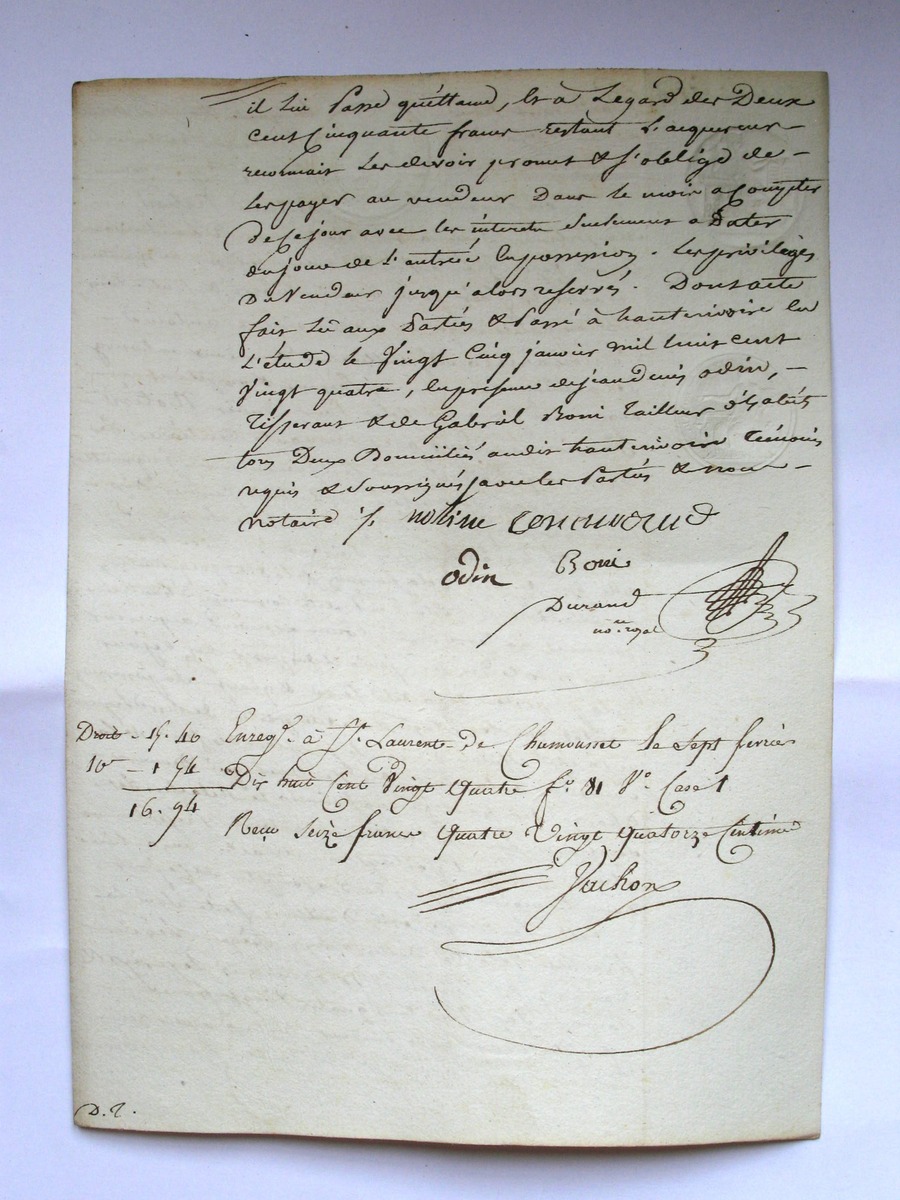 il lui Passe quittance, Et à Legard des Deux
cent Cinquante francs restant L'acquereur
reconnait Les devoir promet & s'oblige de
Les payer au vendeur Dans le mois a Compter
De Ce jour avec les interets Seulement a Dater
du jour de L'entrée En possession. Les privilèges
Du Vendeur jusqu'alors reservés. Dont acte
fait Lû aux Parties & Passé à hauterivoire En
L'étude le Vingt Cinq janvier mil huit cent
Vingt quatre, En présence de jean denis odin,
Tisserant & de Gabriel Boni Tailleur d'habits
tous Deux Domiciliés audit hauterivoire témoins
requis & Soussignés avec les Parties & nous
notaire
odin Boni
Durand
no.re royal
Droit - 15. 40
10e - 1 54
16. 94
Enregé. à St. Laurent de Chamousset le sept février
Dix huit Cent Vingt quatre f.o 81 V.o Case 1
Reçu Seize francs quatre Vingt quatorze Centimes
Vachon
D. T.